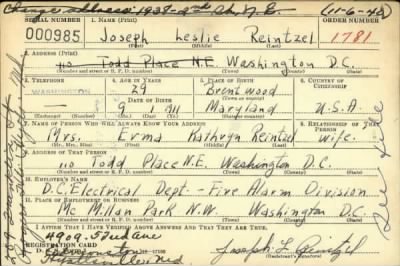 Change address: 1938 - 2nd St. N.E. (11-6-42)
SERIAL NUMBER 1. NAME (Print) ORDER NUMBER
000985 Joseph Leslie Reintzel 1781
(First) (Middle) (Last)
2. ADDRESS (Print)
110 Todd Place N.E. Washington D.C.
(Number and street or R. F. D. number) (Town) (County) (State)
3. TELEPHONE 4. AGE IN YEARS 5. PLACE OF BIRTH 6. COUNTRY OF CITIZENSHIP
WASHINGTON 29 Brentwood
DATE OF BIRTH (Town or county)
— 9 1 1911 Maryland U.S.A.
(Mo.) (Day) (Yr.) (State or country)
7. NAME OF PERSON WHO WILL ALWAYS KNOW YOUR ADDRESS 8. RELATIONSHIP OF THAT PERSON
Mrs. Erma Kathryn Reintzel wife.
(Mr., Mrs., Miss) (First) (Middle) (Last)
9. ADDRESS OF THAT PERSON
110 Todd Place N.E. Washington D.C.
(Number and street or R. F. D. number) (Town) (County) (State)
10. EMPLOYER'S NAME
D.C. Electrical Dept. - Fire Alarm Division
11. PLACE OF EMPLOYMENT OR BUSINESS
Mc Millan Park N.W. Washington D.C.
(Number and street or R. F. D. number) (Town) (County) (State)
I AFFIRM THAT I HAVE VERIFIED ABOVE ANSWERS AND THAT THEY ARE TRUE.
4909
REGISTRATION CARD
D.S.S. Form 1
Joseph L. Reintzel
See